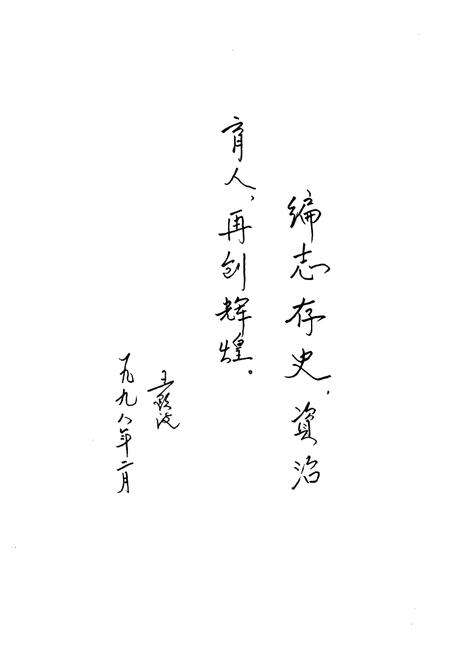 编志存史，資治
育人，再创辉煌。
王
一九九八年二月